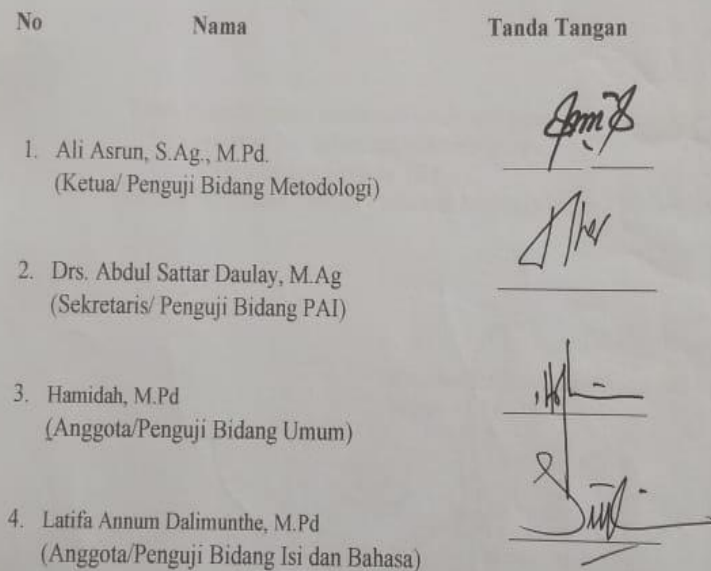 No Nama Tanda Tangan
1. Ali Asrun, S.Ag., M.Pd.
(Ketua/ Penguji Bidang Metodologi)
2. Drs. Abdul Sattar Daulay, M.Ag
(Sekretaris/ Penguji Bidang PAI)
3. Hamidah, M.Pd
(Anggota/Penguji Bidang Umum)
4. Latifa Annum Dalimunthe, M.Pd
(Anggota/Penguji Bidang Isi dan Bahasa)